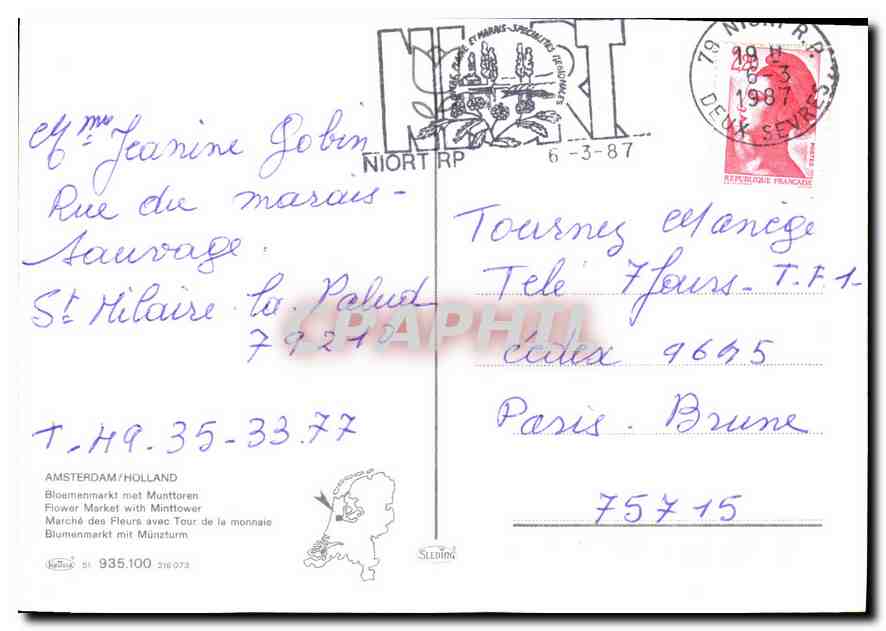 NIORT
PLAINE ET MARAIS-SPECIALITES REGIONALES
NIORT RP 6-3-87
79 NIORT R.P.
19 H
6-3
1987
DEUX SEVRES
2,20
POSTES
REPUBLIQUE FRANCAISE
Mme Jeanine Gobin
Rue du marais-
Sauvage.
St Hilaire la Palud
79210
T.49.35-33.77
Tournez Manège
Télé 7 Jours-T.F.1-
Cedex 9645
Paris. Brune
75715
CPAPHIL
AMSTERDAM/HOLLAND
Bloemenmarkt met Munttoren
Flower Market with Minttower
Marché des Fleurs avec Tour de la monnaie
Blumenmarkt mit Münzturm
51 935.100 216073
SLEDING